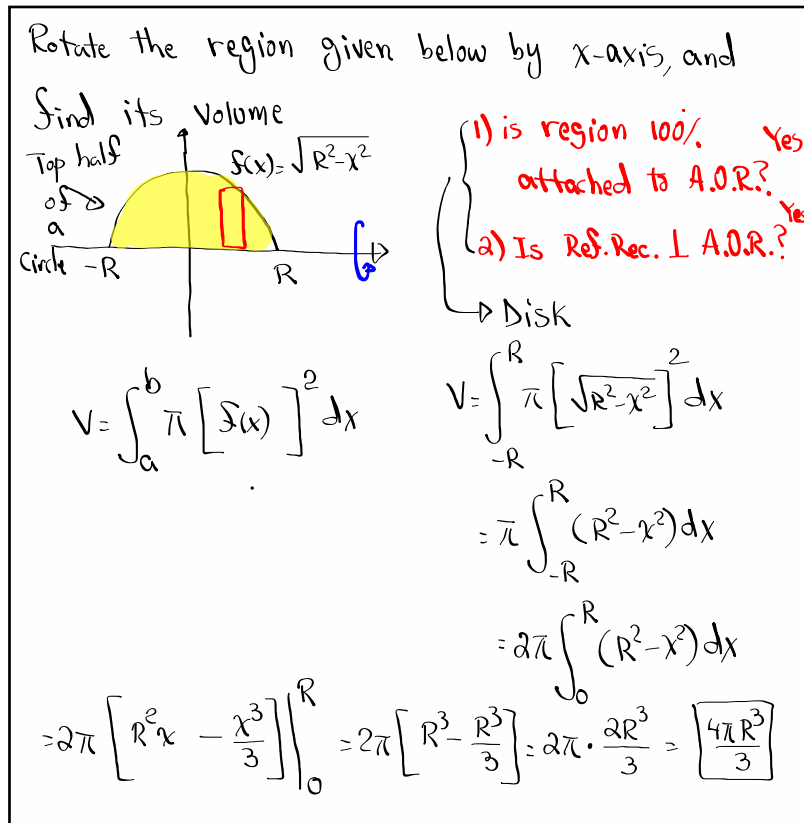 Rotate the region given below by x-axis, and
find its Volume
Top half
of
a
Circle
f(x)=√(R²-x²)
-R
R
1) is region 100% Yes
attached to A.O.R.?
2) Is Ref.Rec. ⊥ A.O.R.? Yes
Disk
V=∫_a^b π[f(x)]² dx
V=∫_{-R}^{R} π[√(R²-x²)]² dx
=π∫_{-R}^{R} (R²-x²)dx
=2π∫_0^R (R²-x²)dx
=2π[R²x - x³/3]|_0^R =2π[R³-R³/3]=2π·2R³/3 = 4πR³/3